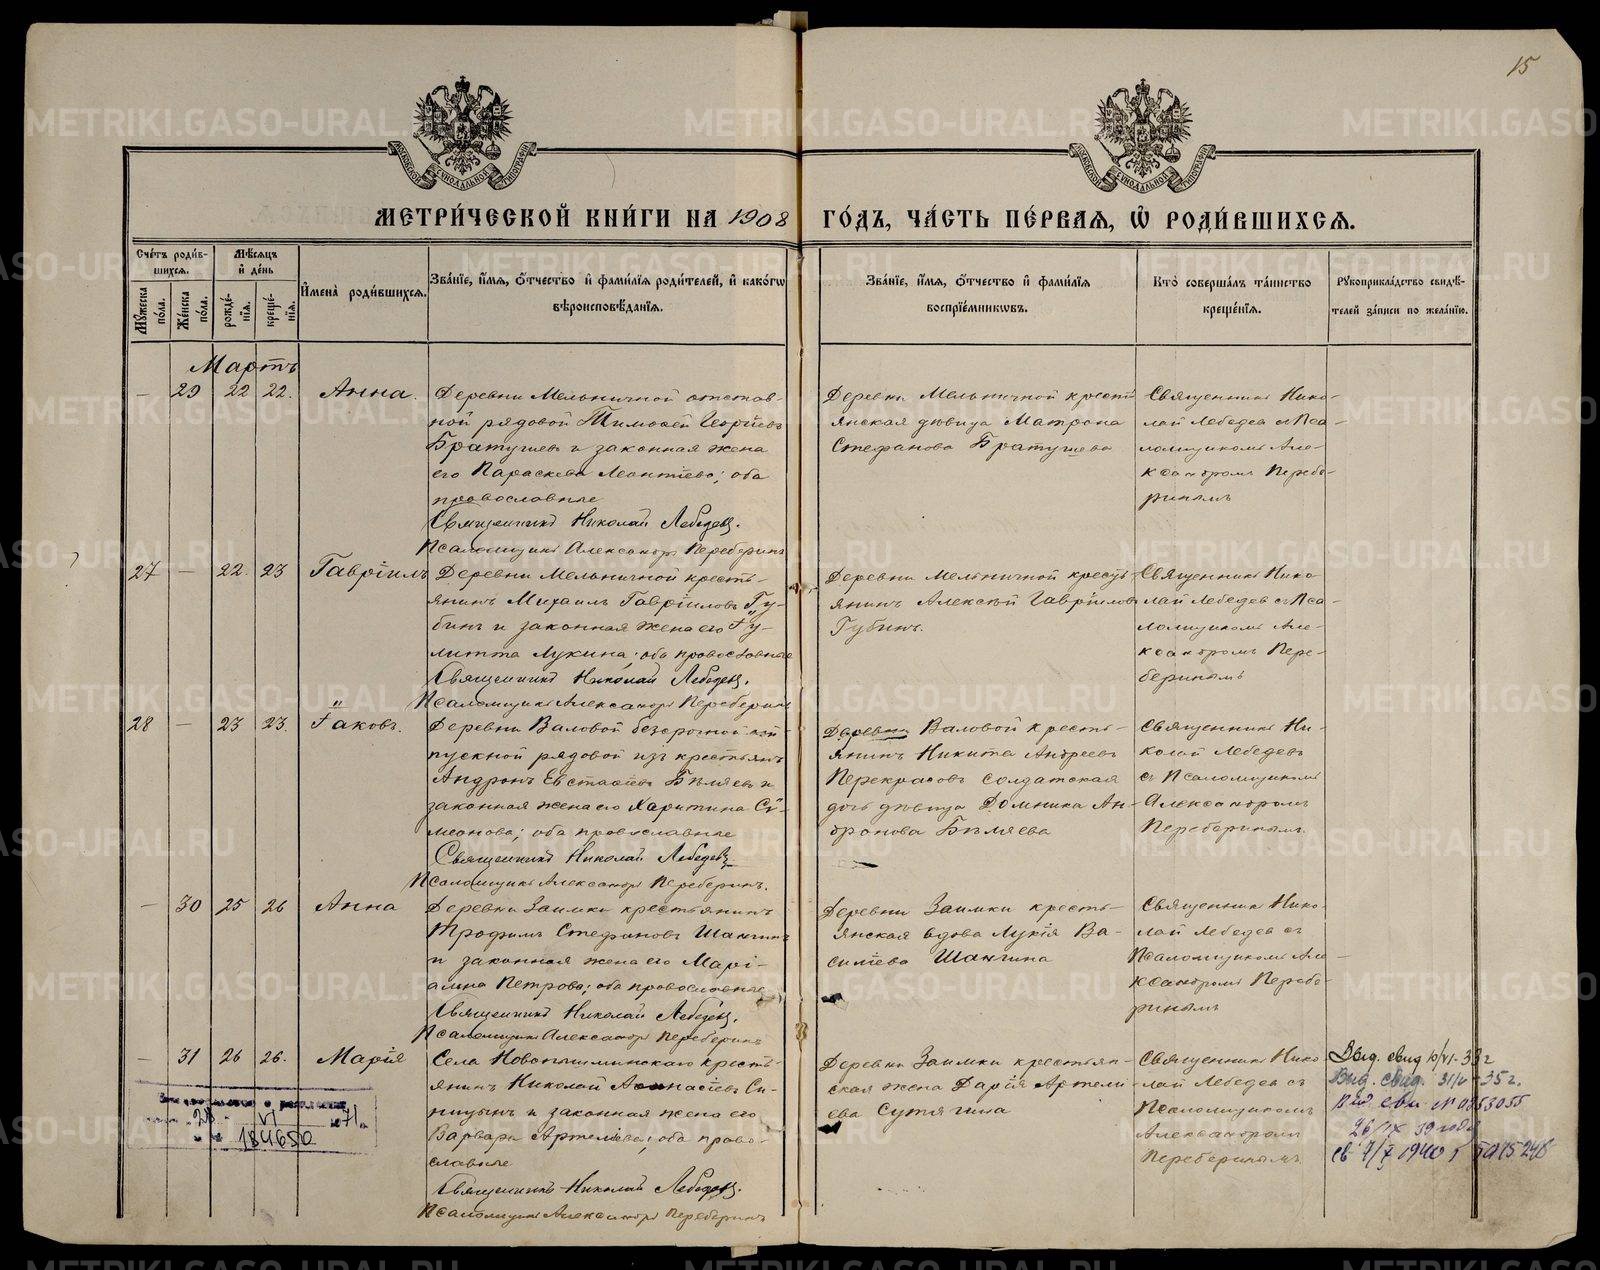 15
МЕТРИ́ЧЕСКОЙ КНИ́ГИ НА 1908 ГО́ДЪ, ЧА́СТЬ ПЕ́РВАЯ, Ѡ҆ РОДИ́ВШИХСѦ.
Сче́тъ роди́в-
шихся.
Мѣ́сяцъ
и҆ де́нь
Мꙋ́жеска по́ла.
Же́нска по́ла.
рожде́-
нїя.
креще́-
нїя.
И҆мена̀ роди́вшихся.
Зва́нїе, и҆́мя, ѻ҆́тчество и҆ фами́лїя роди́телей, и҆ како́гѡ
вѣроисповѣ́данїя.
Зва́нїе, и҆́мя, ѻ҆́тчество и҆ фами́лїя
воспрїе́мникѡвъ.
Кто̀ соверша́лъ та́инство
креще́нїя.
Рꙋкоприкла́дство свидѣ́-
телей за́писи по жела́нїю.
Мартъ
— 29 22 22. Анна.
Деревни Мельничной отстав-
ной рядовой Тимоѳей Георгіевъ
Братушев и законная жена
его Параскева Леонтіева; оба
православные
Священникъ Николай Лебедевъ.
Псаломщикъ Александръ Переберинъ
Деревни Мельничной кресть
янская дѣвица Матрона
Стефанова Братушева
Священникъ Нико-
лай Лебедев съ Пса-
ломщикомъ Але-
ксандромъ Перебе-
ринымъ
27 — 22. 23 Гавріилъ
Деревни Мельничной кресть-
янинъ Михаилъ Гавріиловъ Гу-
бинъ и законная жена его Іу-
литта Лукина; оба православные
Священникъ Николай Лебедевъ.
Псаломщикъ Александръ Переберинъ
Деревни Мельничной кресть
янинъ Алексѣй Гавріиловъ
Губинъ.
Священникъ Нико-
лай Лебедев съ Пса
ломщикомъ Але-
ксандромъ Пере-
беринымъ
28 — 23 23. Іаковъ.
Деревни Валовой безсрочной от-
пускной рядовой изъ крестьянъ
Андронъ Евстафіевъ Бѣляевъ и
законная жена его Харитина Си-
меонова; оба православные
Священникъ Николай Лебедевъ
Псаломщикъ Александръ Переберинъ.
Деревни Валовой кресть-
янинъ Никита Андреевъ
Перекрасовъ солдатская
дочь дѣвица Домника Ан-
дронова Бѣляева
Священникъ Ни-
колай Лебедевъ
съ Псаломщикомъ
Александромъ
Переберинымъ.
— 30 25 26 Анна
Деревни Заимки крестьянинъ
Трофимъ Стефановъ Шангинъ
и законная жена его Марі-
амна Петрова; оба православные
Священникъ Николай Лебедевъ.
Псаломщикъ Александръ Переберинъ
Деревни Заимки кресть-
янская вдова Лукія Ва-
силіева Шангина
Священникъ Нико-
лай Лебедев съ
Псаломщикомъ Але-
ксандромъ Перебе-
ринымъ
— 31 26 26. Марія
Села Новопышминскаго кресть-
янинъ Николай Аѳанасіевъ Си-
ницынъ и законная жена его
Варвара Артеміева; оба право-
славные
Священникъ Николай Лебедевъ.
Псаломщикъ Александръ Переберинъ
Деревни Заимки крестьян-
ская жена Дарія Артемі-
ева Сутягина
Священникъ Нико
лай Лебедев съ
Псаломщикомъ
Александромъ
Переберинымъ
Выд. свид 10/VI-33 г
Выд. свид. 31/V-35 г.
Выд сви. № 0353055
26/IX 39 года
св 7/X 1940 г
28 VI 1971
184650
METRIKI.GASO-URAL.RU